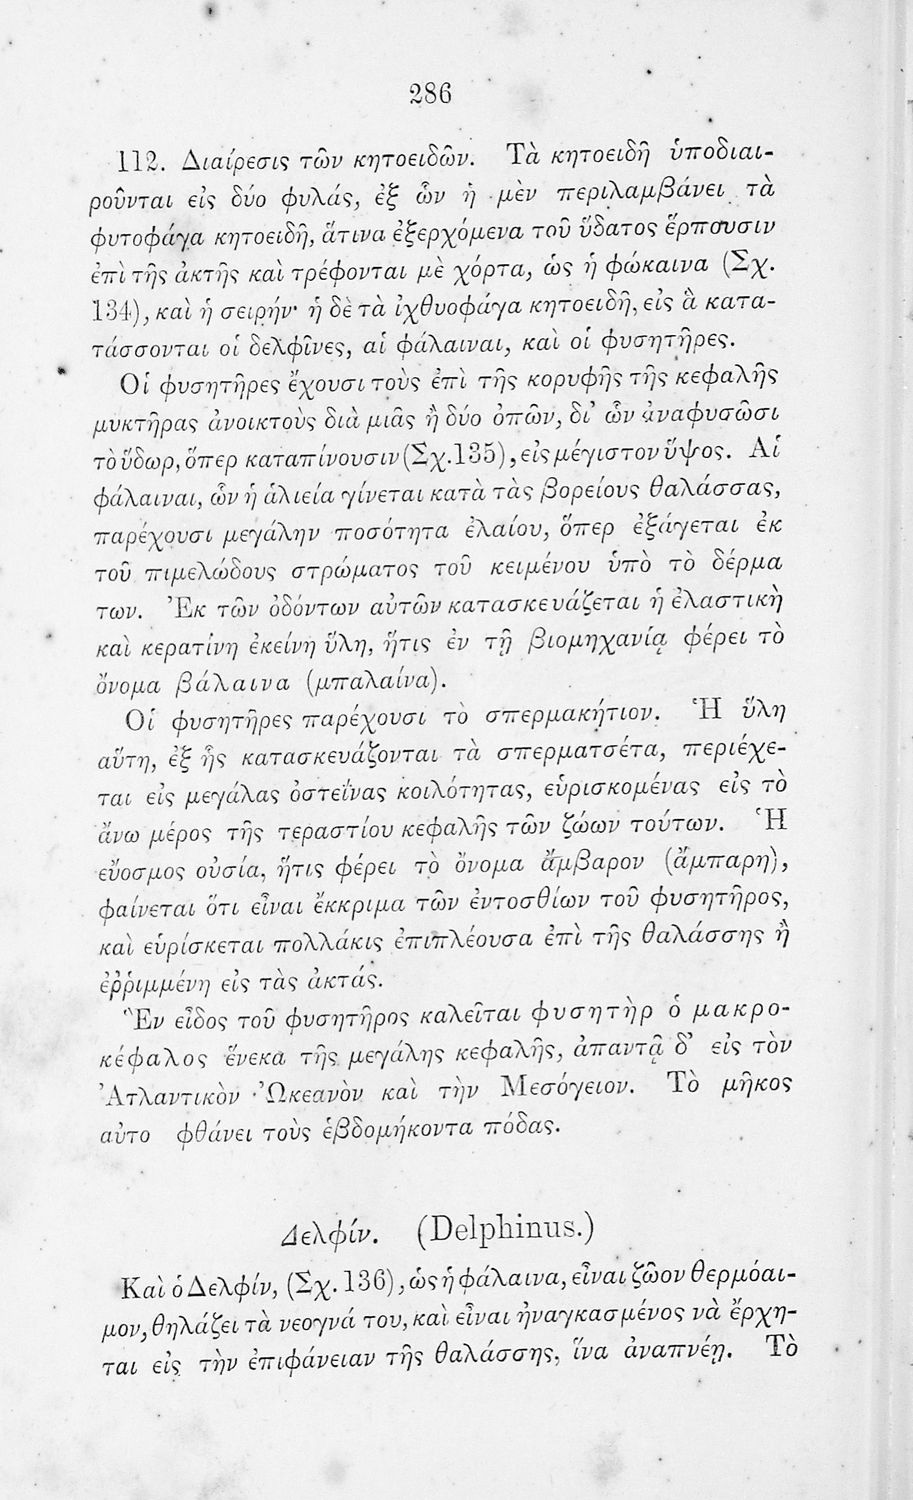 286
112. Διαίρεσις τῶν κητοειδῶν. Τὰ κητοειδῆ ὑποδιαι-
ροῦνται εἰς δύο φυλάς, ἐξ ὧν ἡ μὲν περιλαμβάνει τὰ
φυτοφάγα κητοειδῆ, ἅτινα ἐξερχόμενα τοῦ ὕδατος ἕρπουσιν
ἐπὶ τῆς ἀκτῆς καὶ τρέφονται μὲ χόρτα, ὡς ἡ φώκαινα (Σχ.
134), καὶ ἡ σειρήν· ἡ δὲ τὰ ἰχθυοφάγα κητοειδῆ, εἰς ἃ κατα-
τάσσονται οἱ δελφῖνες, αἱ φάλαιναι, καὶ οἱ φυσητῆρες.
Οἱ φυσητῆρες ἔχουσι τοὺς ἐπὶ τῆς κορυφῆς τῆς κεφαλῆς
μυκτῆρας ἀνοικτοὺς διὰ μιᾶς ἢ δύο ὀπῶν, δι' ὧν ἀναφυσῶσι
τὸ ὕδωρ, ὅπερ καταπίνουσιν (Σχ. 135), εἰς μέγιστον ὕψος. Αἱ
φάλαιναι, ὧν ἡ ἁλιεία γίνεται κατὰ τὰς βορείους θαλάσσας,
παρέχουσι μεγάλην ποσότητα ἐλαίου, ὅπερ ἐξάγεται ἐκ
τοῦ πιμελώδους στρώματος τοῦ κειμένου ὑπὸ τὸ δέρμα
των. Ἐκ τῶν ὀδόντων αὐτῶν κατασκευάζεται ἡ ἐλαστικὴ
καὶ κερατίνη ἐκείνη ὕλη, ἥτις ἐν τῇ βιομηχανίᾳ φέρει τὸ
ὄνομα βάλαινα (μπαλαίνα).
Οἱ φυσητῆρες παρέχουσι τὸ σπερμακήτιον. Ἡ ὕλη
αὕτη, ἐξ ἧς κατασκευάζονται τὰ σπερματσέτα, περιέχε-
ται εἰς μεγάλας ὀστεΐνας κοιλότητας, εὑρισκομένας εἰς τὸ
ἄνω μέρος τῆς τεραστίου κεφαλῆς τῶν ζώων τούτων. Ἡ
εὔοσμος οὐσία, ἥτις φέρει τὸ ὄνομα ἄμβαρον (ἄμπαρη),
φαίνεται ὅτι εἶναι ἔκκριμα τῶν ἐντοσθίων τοῦ φυσητῆρος,
καὶ εὑρίσκεται πολλάκις ἐπιπλέουσα ἐπὶ τῆς θαλάσσης ἢ
ἐῤῥιμμένη εἰς τὰς ἀκτάς.
Ἓν εἶδος τοῦ φυσητῆρος καλεῖται φυσητὴρ ὁ μακρο-
κέφαλος ἕνεκα τῆς μεγάλης κεφαλῆς, ἀπαντᾷ δ' εἰς τὸν
Ἀτλαντικὸν Ὠκεανὸν καὶ τὴν Μεσόγειον. Τὸ μῆκος
αὐτο φθάνει τοὺς ἑβδομήκοντα πόδας.
Δελφίν. (Delphinus.)
Καὶ ὁ Δελφίν, (Σχ. 136), ὡς ἡ φάλαινα, εἶναι ζῶον θερμόαι-
μον, θηλάζει τὰ νεογνά του, καὶ εἶναι ἠναγκασμένος νὰ ἔρχη-
ται εἰς τὴν ἐπιφάνειαν τῆς θαλάσσης, ἵνα ἀναπνέῃ. Τὸ